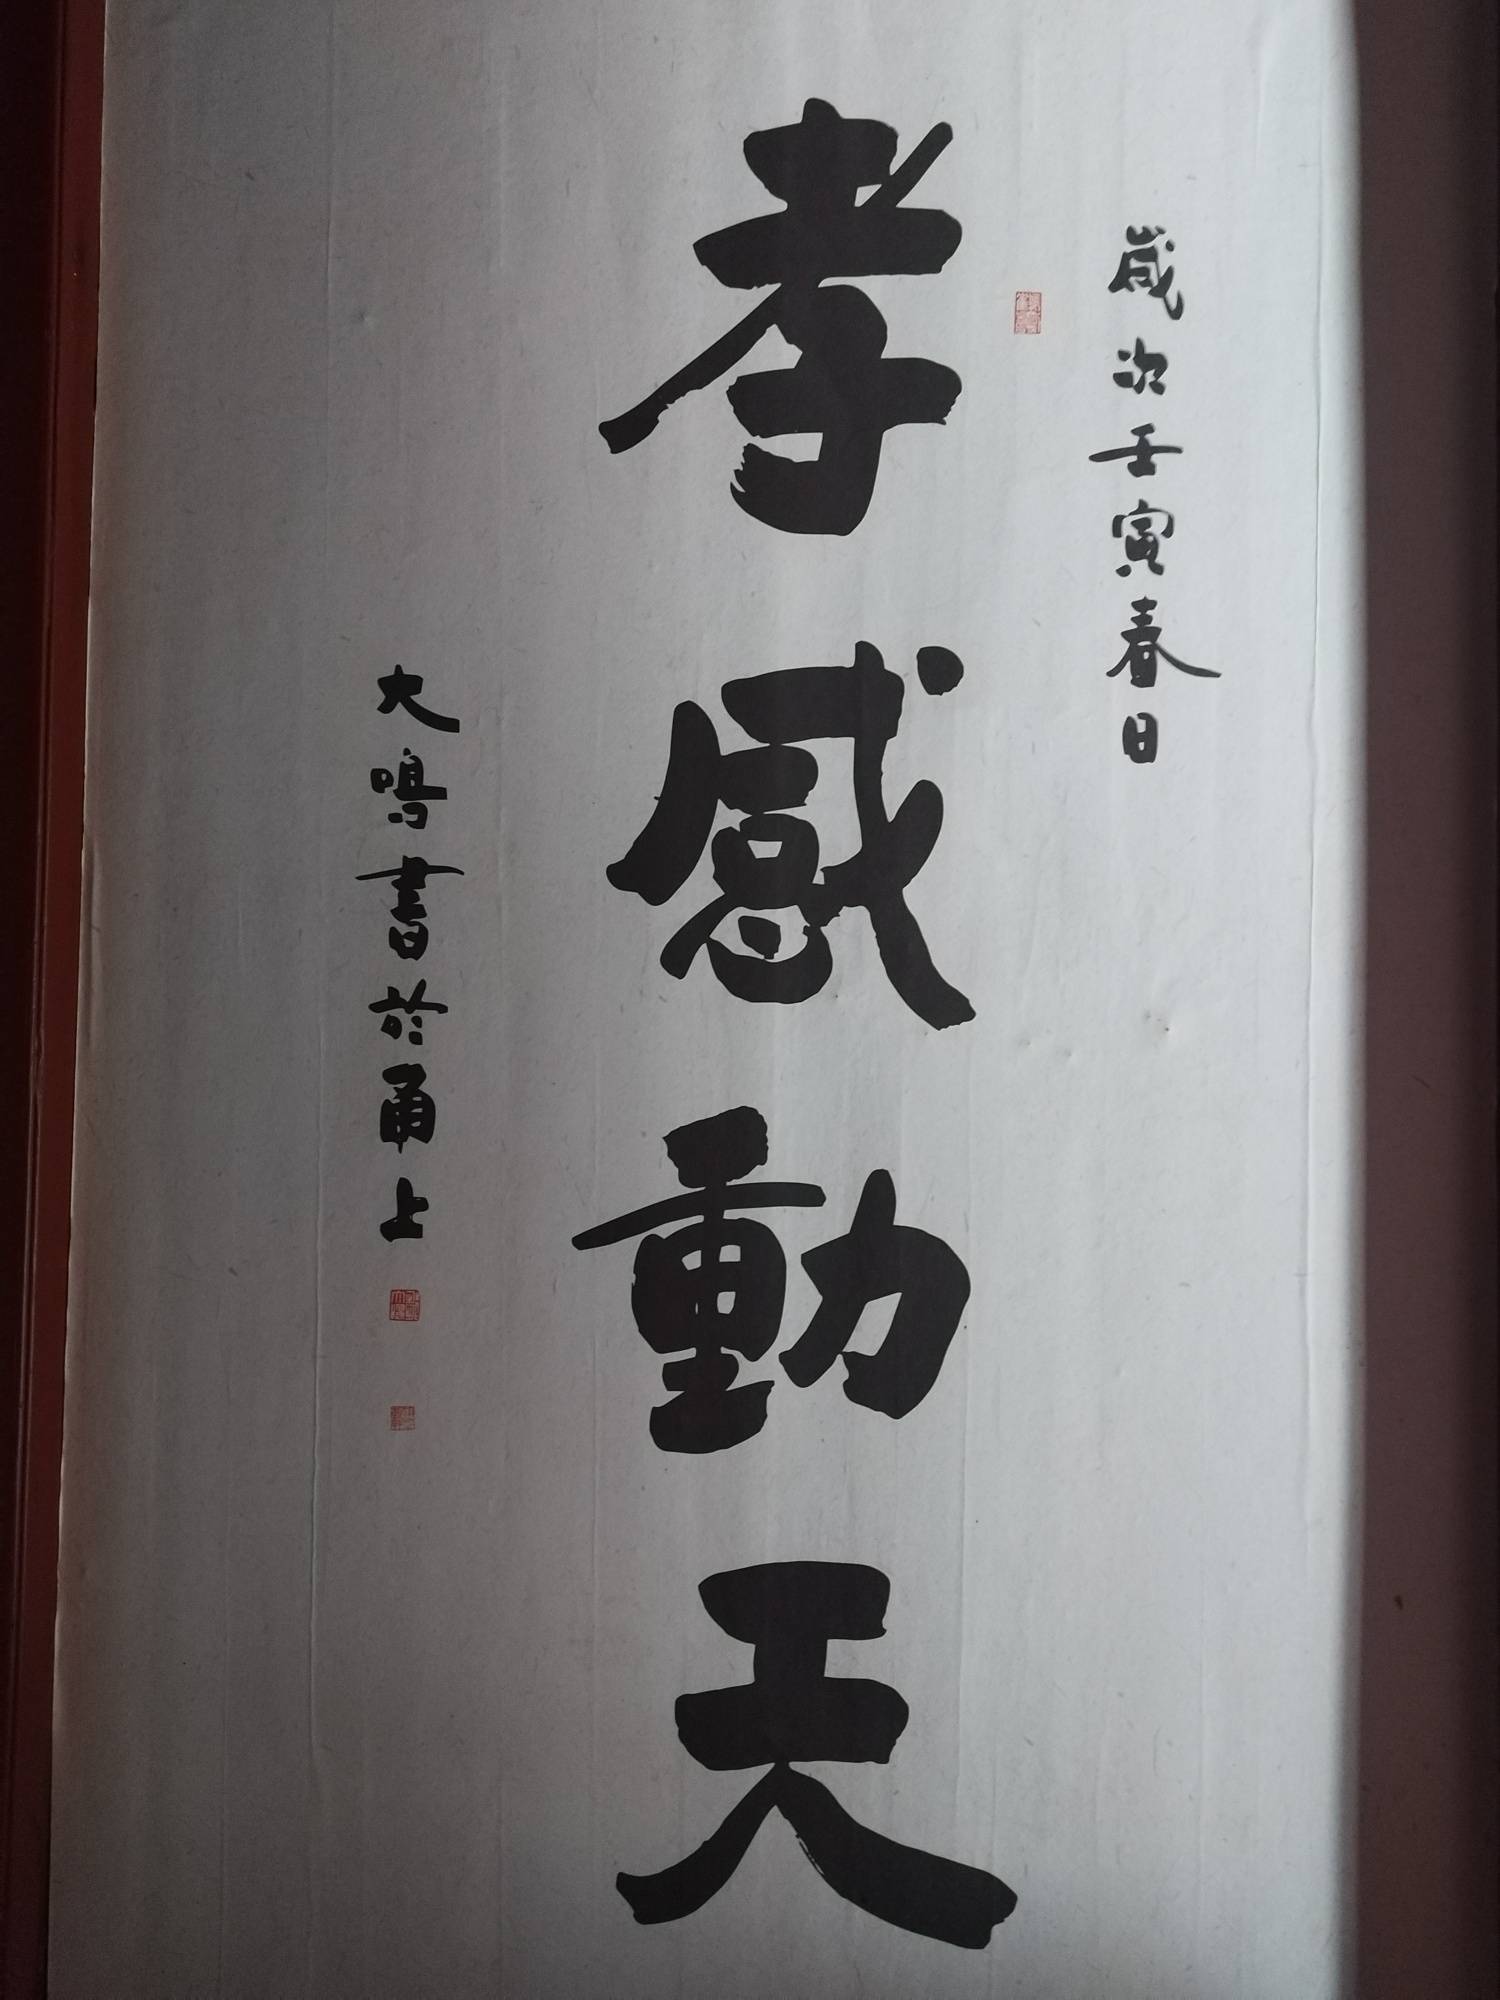 歲次壬寅春日
孝感動天
大鳴書於甬上